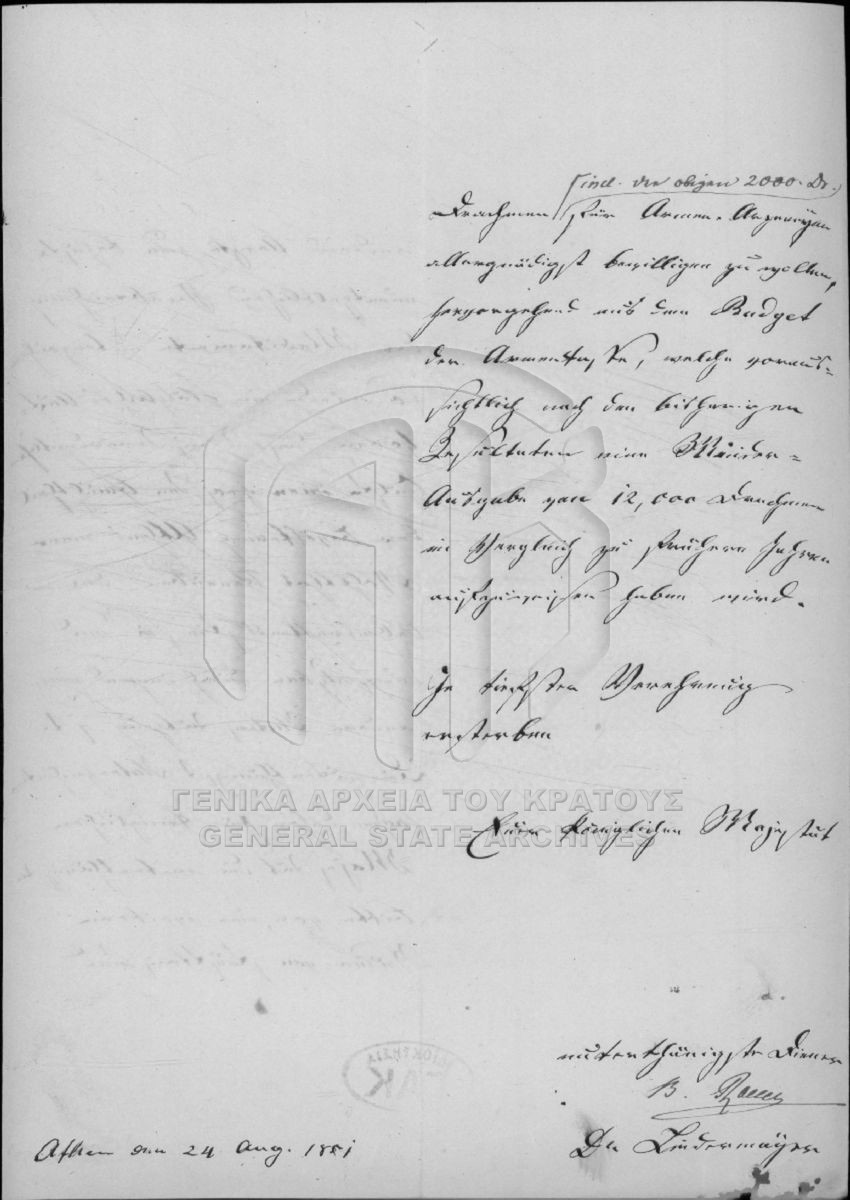 (incl. der obigen 2000 Dr.)
Drachmen für Armen-Arzeneyen
allergnädigst bewilligen zu wollen,
hervorgehend aus dem Budget
der Armenkasse, welche voraus=
sichtlich nach den bisherigen
Resultaten eine Minder=
Ausgabe von 12,000 Drachmen
im Vergleich zu frühern Jahren
aufzuweisen haben wird.
In tiefster Verehrung
ersterben
ΓΕΝΙΚΑ ΑΡΧΕΙΑ ΤΟΥ ΚΡΑΤΟΥΣ
GENERAL STATE ARCHIVES
Euer Königlichen Majestät
unterthänigste Diener
B.
Dr Lindermayer
Athen den 24 Aug. 1851